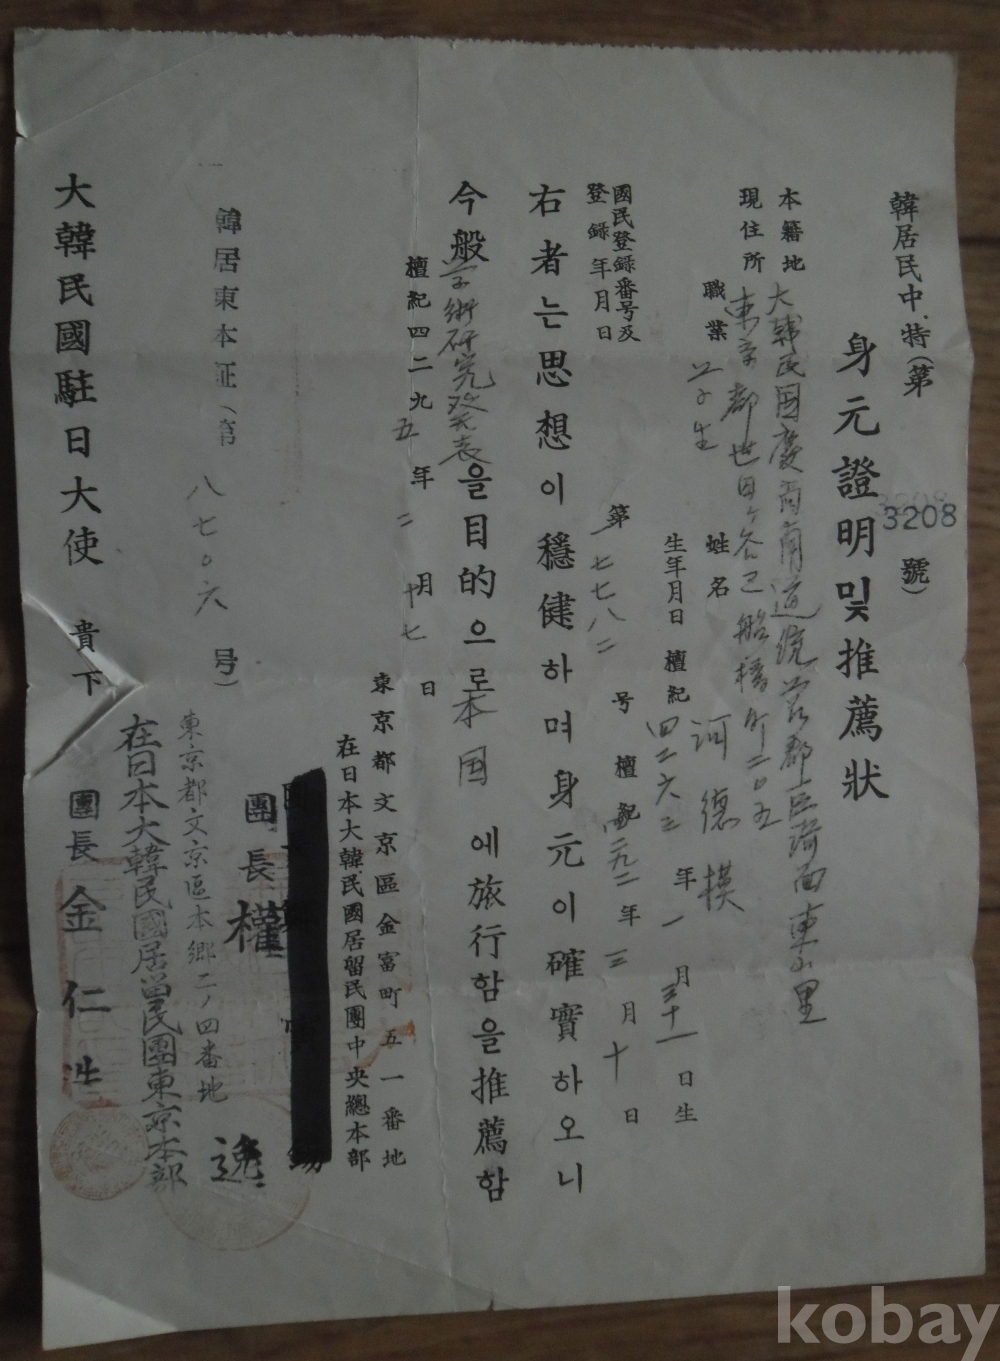 韓居民中.特(第 3208 號)
身元證明및推薦狀
本籍地 大韓民国慶尚南道統営郡山陽面東山里
現住所 東京都世田ケ谷区船橋町二〇五
職業 学生
姓名 河德模
生年月日 檀紀 四二六三年一月三十一日生
國民登録番号及
登録年月日
第七七八二号 檀紀四二九二年三月十日
右者는思想이穩健하며身元이確實하오니
今般学術研究発表을目的으로本国에旅行함을推薦함
檀紀四二九五年二月十七日
東京都文京區金富町五一番地
在日本大韓民國居留民團中央總本部
團長 權 逸
韓居東本証(第八七〇六号)
東京都文京區本郷二ノ四番地
在日本大韓民國居留民團東京本部
團長 金仁
大韓民國駐日大使 貴下
kobay